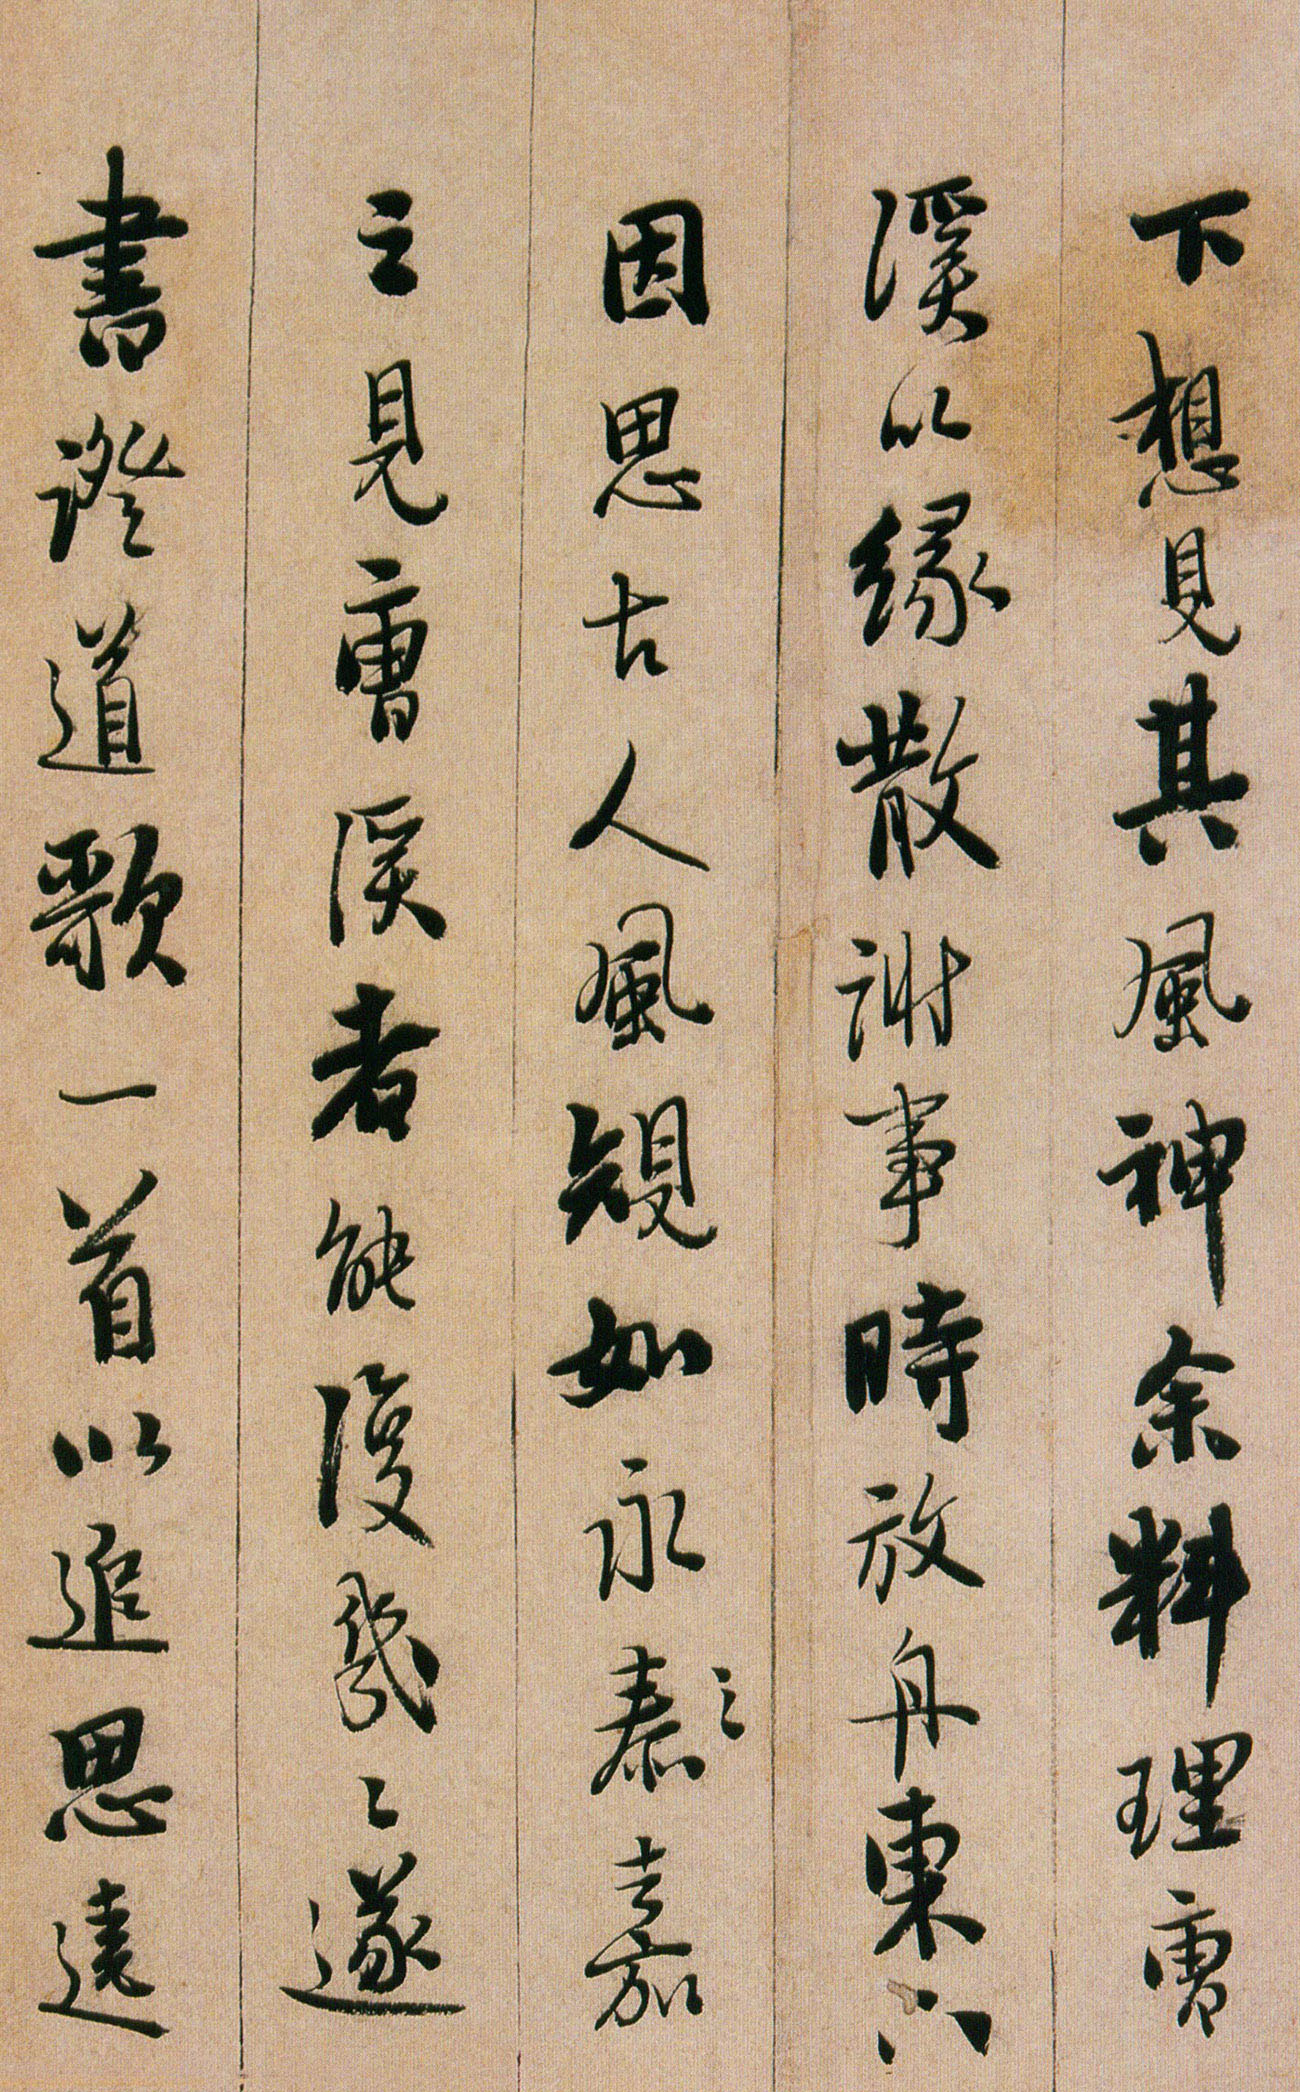 下想見其風神余料理曹
溪以緣散謝事時放舟東下
因思古人風規如永泰嘉
之見曹溪者能復幾〻遂
書證道歌一首以追思遠